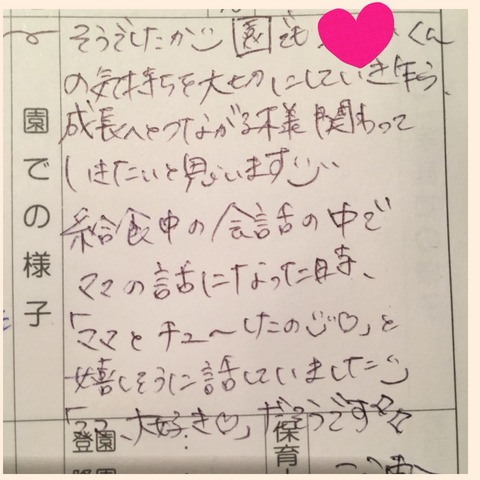 園での様子
そうでしたか 園でも くん
の気持ちを大切にしていき乍ら、
成長へとつながる様関わって
いきたいと思います
給食中の会話の中で
ママの話になった時、
「ママとチュ〜したの♡」と
嬉しそうに話していました
「ママ、大好き♡」だそうです
登園
保育